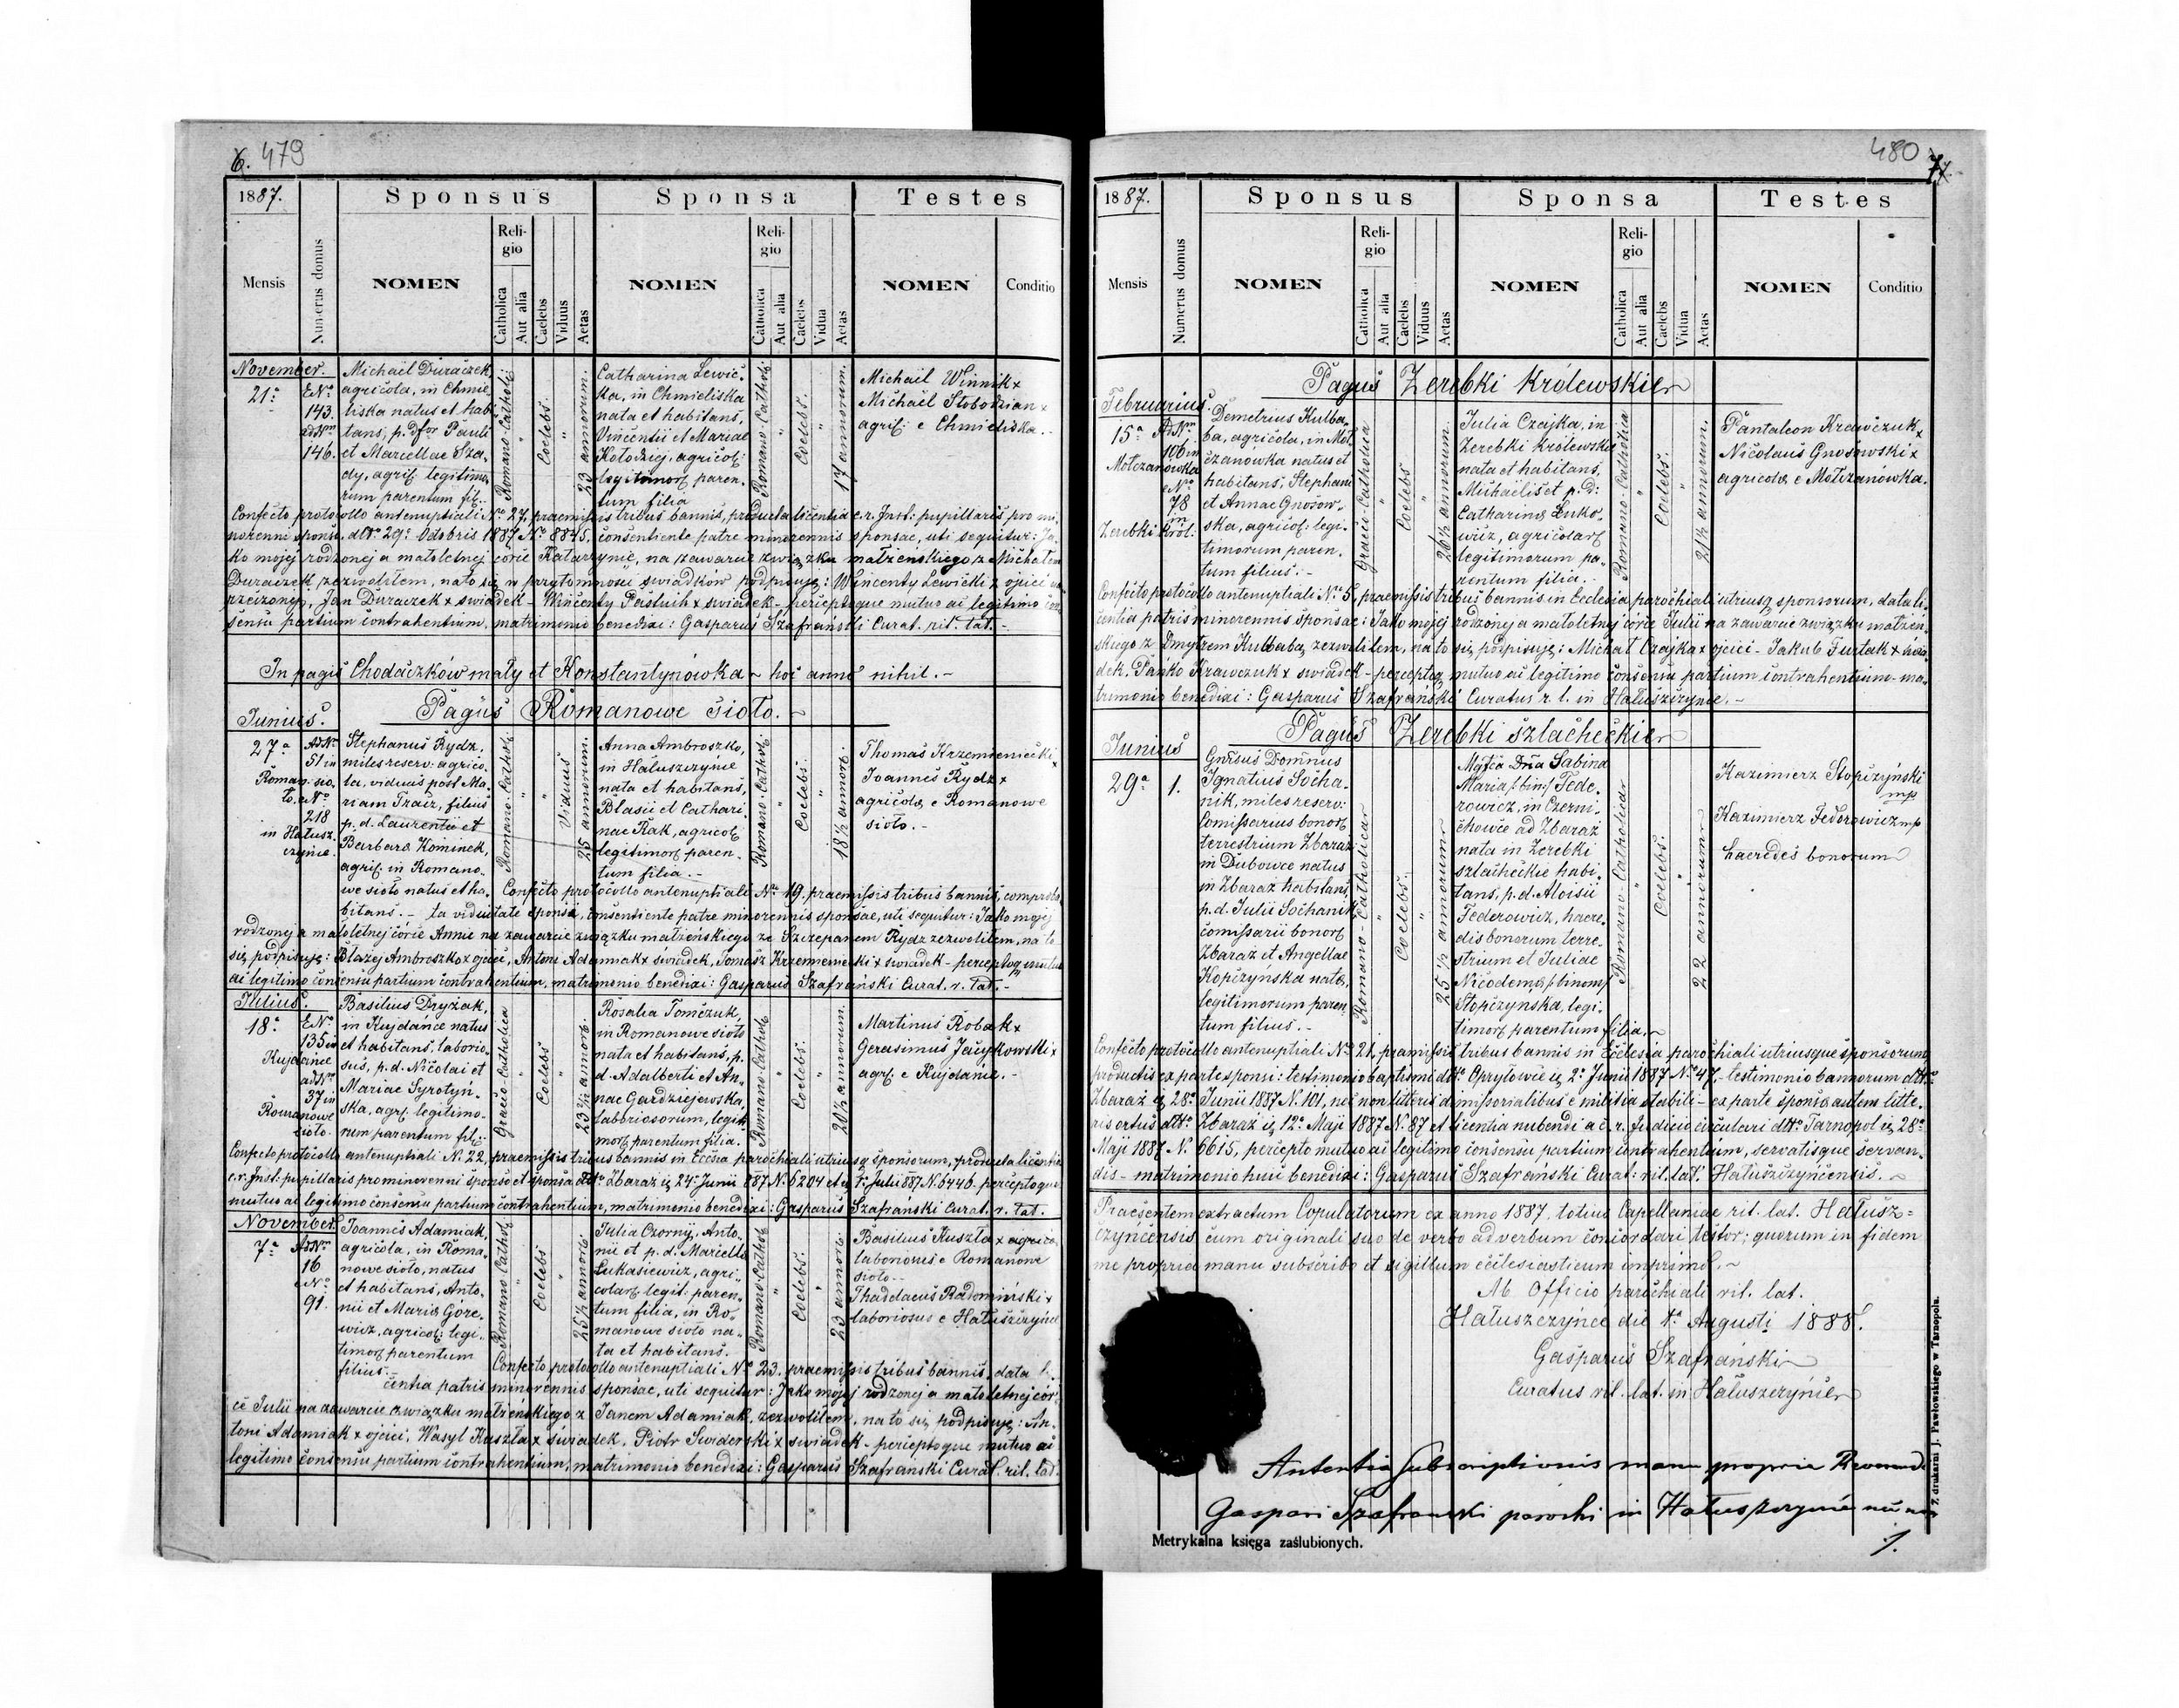 6. 479
1887.
Sponsus
Sponsa
Testes
Mensis
Numerus domus
NOMEN
Religio
Catholica
Aut alia
Caelebs
Viduus
Aetas
NOMEN
Religio
Catholica
Aut alia
Caelebs
Vidua
Aetas
NOMEN
Conditio
November.
21ª
E Nº
143.
ad Nm
146.
Michaël Duraczek
agricola, in Chmie
liska natus et habi
tans, p. dfor Pauli
et Marcellae Sza,
dy, agric. legitimo,
rum parentum fil.
Romano-Cathol:
"
Coelebs.
"
23 annorum.
Catharina Lewic,
ka, in Chmieliska
nata et habitans,
Vincentii et Mariae
Kołodziej, agricol:
legitimor paren,
tum filia
Romano-Cathol:
"
Coelebs.
"
17 annorum.
Michaël Winnik x
Michaël Słobodzian x
agric: e Chmieliska.-
Confecto protocollo antenuptiali Nº 27, praemissis tribus bannis, producta licentia c.r. Inst: pupillaris pro mi,
norenni sponsa, dtto 29ª Octobris 1887 Nº 8845, consentiente patre minorennis sponsae, uti sequitur: Ja,
ko mojej rodzonej a małoletnej córce Katarzynie, na zawarcie związku małżeńskiego z Michałem
Duraczek zezwoliłem, na to się w przytomności świadków podpisuję: Wincenty Lewicki x ojciec
rzeczonej, Jan Duraczek x świadek - Wincenty Pastuch x świadek - perceptoque mutuo ac legitimo con,
sensu partium contrahentium, matrimonio benedixi: Gasparus Szafrański Curat. rit. lat. -
In pagis Chodaczków mały et Konstantynówka - hoc anno nihil. -
Pagus Romanowe sioło.
Junius.
27ª
Ad Nm
51 in
Roman: sio,
ło. e Nº
218
in Hałusz,
czyńce.
Stephanus Rydz,
miles reserv: agrico,
la, viduus post Ma,
riam Tracz, filius
p. d. Laurentii et
Barbara Kominek,
agric. in Romano,
we sioło natus et ha,
bitans. -
Romano-Cathol:
"
"
Viduus
25 annorum.
Anna Ambroszko,
in Hałuszczyńce
nata et habitans,
Blasii et Cathari,
nae Rak, agricol
legitimor paren,
tum filia. -
Romano-Cathol:
"
Coelebs.
"
18½ annor.
Thomas Krzemieniecki x
Joannes Rydz x
agricolae e Romanowe
sioło. -
Confecto protocollo antenuptiali Nº 19. praemissis tribus bannis, comproba,
ta viduitate sponsi, consentiente patre minorennis sponsae, uti sequitur: Jako mojej
rodzonej a małoletnej córce Annie na zawarcie związku małżeńskiego ze Szczepanem Rydz zezwoliłem, na to
się podpisuję: Błażej Ambroszko x ojciec, Antoni Adamiak x świadek, Tomasz Krzemieniecki x świadek - perceptoq mutuo
ac legitimo consensu partium contrahentium, matrimonio benedixi: Gasparus Szafrański Curat. r. lat. -
Julius.
18ª
E Nº
135 in
Kujdańce
ad Nm
37 in
Romanowe
sioło.
Basilius Dryżak,
in Kujdańce natus
et habitans, laborio,
sus, p. d. Nicolai et
Mariae Syrotyń,
ska, agr. legitimo,
rum parentum fil.:
Graeco-Catholica
"
Coelebs
"
23½ annor.
Rosalia Tomczuk,
in Romanowe sioło
nata et habitans, p.
d. Adalberti et An,
nae Gardziejewska,
laboriosorum, legiti
mor parentum filia.
Romano-Cathol:
"
Coelebs.
"
20½ annorum.
Martinus Robak x
Gerasimus Jacykowski x
agr. e Kujdańce. -
Confecto protocollo antenuptiali N. 22, praemissis tribus bannis in Eccsia parochiali utriusq sponsorum, producta licentia
c.r. Inst: pupillaris pro minorenni sponso et sponsa dtto Zbaraż 24ª Junii 887 N. 6204 et 1ª Julii 887 N. 6446 - perceptoque
mutuo ac legitimo consensu partium contrahentium, matrimonio benedixi: Gasparus Szafrański Curat. r. lat.
November.
7ª
Ad Nm
16
e Nº
91.
Joannes Adamiak,
agricola, in Roma,
nowe sioło, natus
et habitans, Anto,
nii et Maria Gore,
wicz, agricol: legi,
timor parentum
filius.
Romano Cathol:
"
Coelebs
"
25½ annor.
Julia Czorny, Anto,
nii et p. d. Mariella
Łukasiewicz, agri,
colar legit: paren,
tum filia, in Ro,
manowe sioło na,
ta et habitans.
Romano-Cathol
"
Coelebs.
"
23 annor.
Basilius Kuszła x
laboriosus e Romanowe
sioło. -
Thaddaeus Radomiński x
laboriosus e Hałuszczyńce
Confecto protocollo antenuptiali Nº 23. praemissis tribus bannis, data li,
centia patris minorennis sponsae, uti sequitur: Jako mojej rodzonej a małoletnej cór,
ce Julii na zawarcie związku małżeńskiego z Janem Adamiak, zezwoliłem, na to się podpisuję: An,
toni Adamiak x ojciec, Wasyl Kuszła x świadek, Piotr Swiderski x świadek - perceptoque mutuo ac
legitimo consensu partium contrahentium, matrimonio benedixi: Gasparus Szafrański Curat. rit. lat.
480
1887.
Sponsus
Sponsa
Testes
Mensis
Numerus domus
NOMEN
Religio
Catholica
Aut alia
Caelebs
Viduus
Aetas
NOMEN
Religio
Catholica
Aut alia
Caelebs
Vidua
Aetas
NOMEN
Conditio
Pagus Zerebki królewskie
Februarius.
15ª
Ad Nm
106 in
Mołczanówka
e Nº
78
in
Zerebki Król:
Demetrius Kulba,
ba, agricola, in Moł,
czanówka natus et
habitans, Stephani
et Annae Gnosow,
ska, agricol: legi,
timorum paren,
tum filius. -
Graeco-Catholica
"
Coelebs
"
26½ annorum.
Julia Czajka, in
Zerebki królewskie
nata et habitans,
Michaëlis et p. d:
Catharina Łuko,
wicz, agricolar
legitimorum pa,
rentum filia.
Romano-Catholica
"
Coelebs.
"
21½ annorum.
Pantaleon Krawczuk x
Nicolaus Gnosowski x
agricolae e Mołczanówka.
Confecto protocollo antenuptiali Nº 5, praemissis tribus bannis in Ecclesia parochiali utriusq sponsorum, data li,
centia patris minorennis sponsae: Jako mojej rodzonej a małoletnej córce Julii na zawarcie związku małżeń,
skiego z Dmytrem Kulbaba, zezwoliłem, na to się podpisuję: Michał Czajka x ojciec - Jakub Furtak x świa,
dek. Pańko Krawczuk x świadek - perceptoq mutuo ac legitimo consensu partium contrahentium - ma,
trimonio benedixi: Gasparus Szafrański Curatus r. l. in Hałuszczyńce. -
Pagus Zerebki szlacheckie
Junius
29ª
1.
Gnrsus Dominus
Ignatius Socha,
nik, miles reserv:
Comissarius bonor
terrestrium Zbaraż
in Dubowce natus
in Zbaraż habitans,
p. d. Julii Sochanik
comissarii bonor
Zbaraż et Angellae
Kopczyńska nata,
legitimorum paren,
tum filius. -
Romano-Catholica
"
Coelebs.
"
25½ annorum
Mgfca Dna Sabina
Maria /:bin:/ Fede,
rowicz, in Czerni,
chowce ad Zbaraż
nata in Zerebki
szlacheckie habi,
tans, p. d. Aloisii
Federowicz, haere,
dis bonorum terre,
strium et Juliae
Nicodema /:binom:/
Stopczynska, legi,
timor parentum filia.
Romano-Catholica
"
Coelebs.
"
22 annorum
Kazimierz Stopczyński
mp
Kazimierz Federowicz mp
haeredes bonorum
Confecto protocollo antenuptiali Nº 21, praemissis tribus bannis in Ecclesia parochiali utriusque sponsorum
productis ex parte sponsi: testimonio baptismi dtto Opryłowce 2ª Junii 1887 Nº 47, - testimonio bannorum dtto
Zbaraż 28ª Junii 1887 N. 101, nec non litteris dimissorialibus e militia stabili - ex parte sponsa autem litte,
ris ortus dtto Zbaraż 12ª Maji 1887 N. 87 et licentia nubendi a c. r. Judicio circulari dtto Tarnopol 28ª
Maji 1887 N. 6615, percepto mutuo ac legitimo consensu partium contrahentium, servatisque servan,
dis - matrimonio huic benedixi: Gasparus Szafrański Curat: rit. lat. Hałuszczyńcensis.
Praesentem extractum Copulatorum ex anno 1887. totius Capellaniae rit. lat. Hałusz=
czyńcensis cum originali suo de verbo ad verbum concordari testor; quorum in fidem
me propria manu subscribo et sigillum ecclesiasticum imprimo.
Ab Officio parochiali rit. lat.
Hałuszczyńce die 1ª Augusti 1888.
Gasparus Szafrański
Curatus rit. lat. in Hałuszczyńce
subscriptionis manu propria
Gaspari Szafranski parochi in Hałuszczyńce
Metrykalna księga zaślubionych.
Z drukarni J. Pawłowskiego w Tarnopolu.